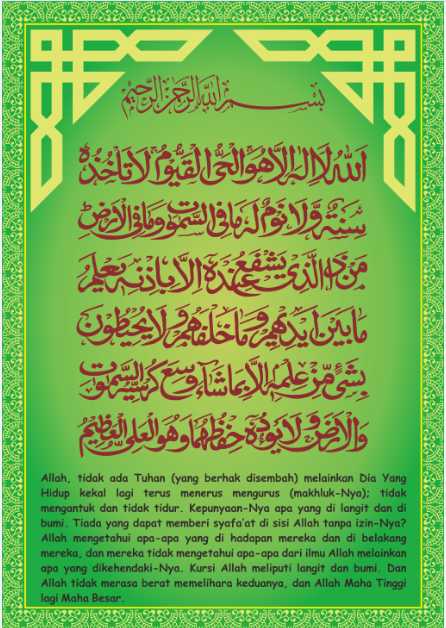 بسم الله الرحمن الرحيم
الله لا اله الا هو الحي القيوم لا تاخذه
سنة ولا نوم له ما فى السموت وما فى الارض
من ذا الذى يشفع عنده الا باذنه يعلم
ما بين ايديهم وما خلفهم ولا يحيطون
بشئ من علمه الا بما شاء وسع كرسيه السموت
والارض ولا يوده حفظهما وهو العلي العظيم
Allah, tidak ada Tuhan (yang berhak disembah) melainkan Dia Yang
Hidup kekal lagi terus menerus mengurus (makhluk-Nya); tidak
mengantuk dan tidak tidur. Kepunyaan-Nya apa yang di langit dan di
bumi. Tiada yang dapat memberi syafa'at di sisi Allah tanpa izin-Nya?
Allah mengetahui apa-apa yang di hadapan mereka dan di belakang
mereka, dan mereka tidak mengetahui apa-apa dari ilmu Allah melainkan
apa yang dikehendaki-Nya. Kursi Allah meliputi langit dan bumi. Dan
Allah tidak merasa berat memelihara keduanya, dan Allah Maha Tinggi
lagi Maha Besar.